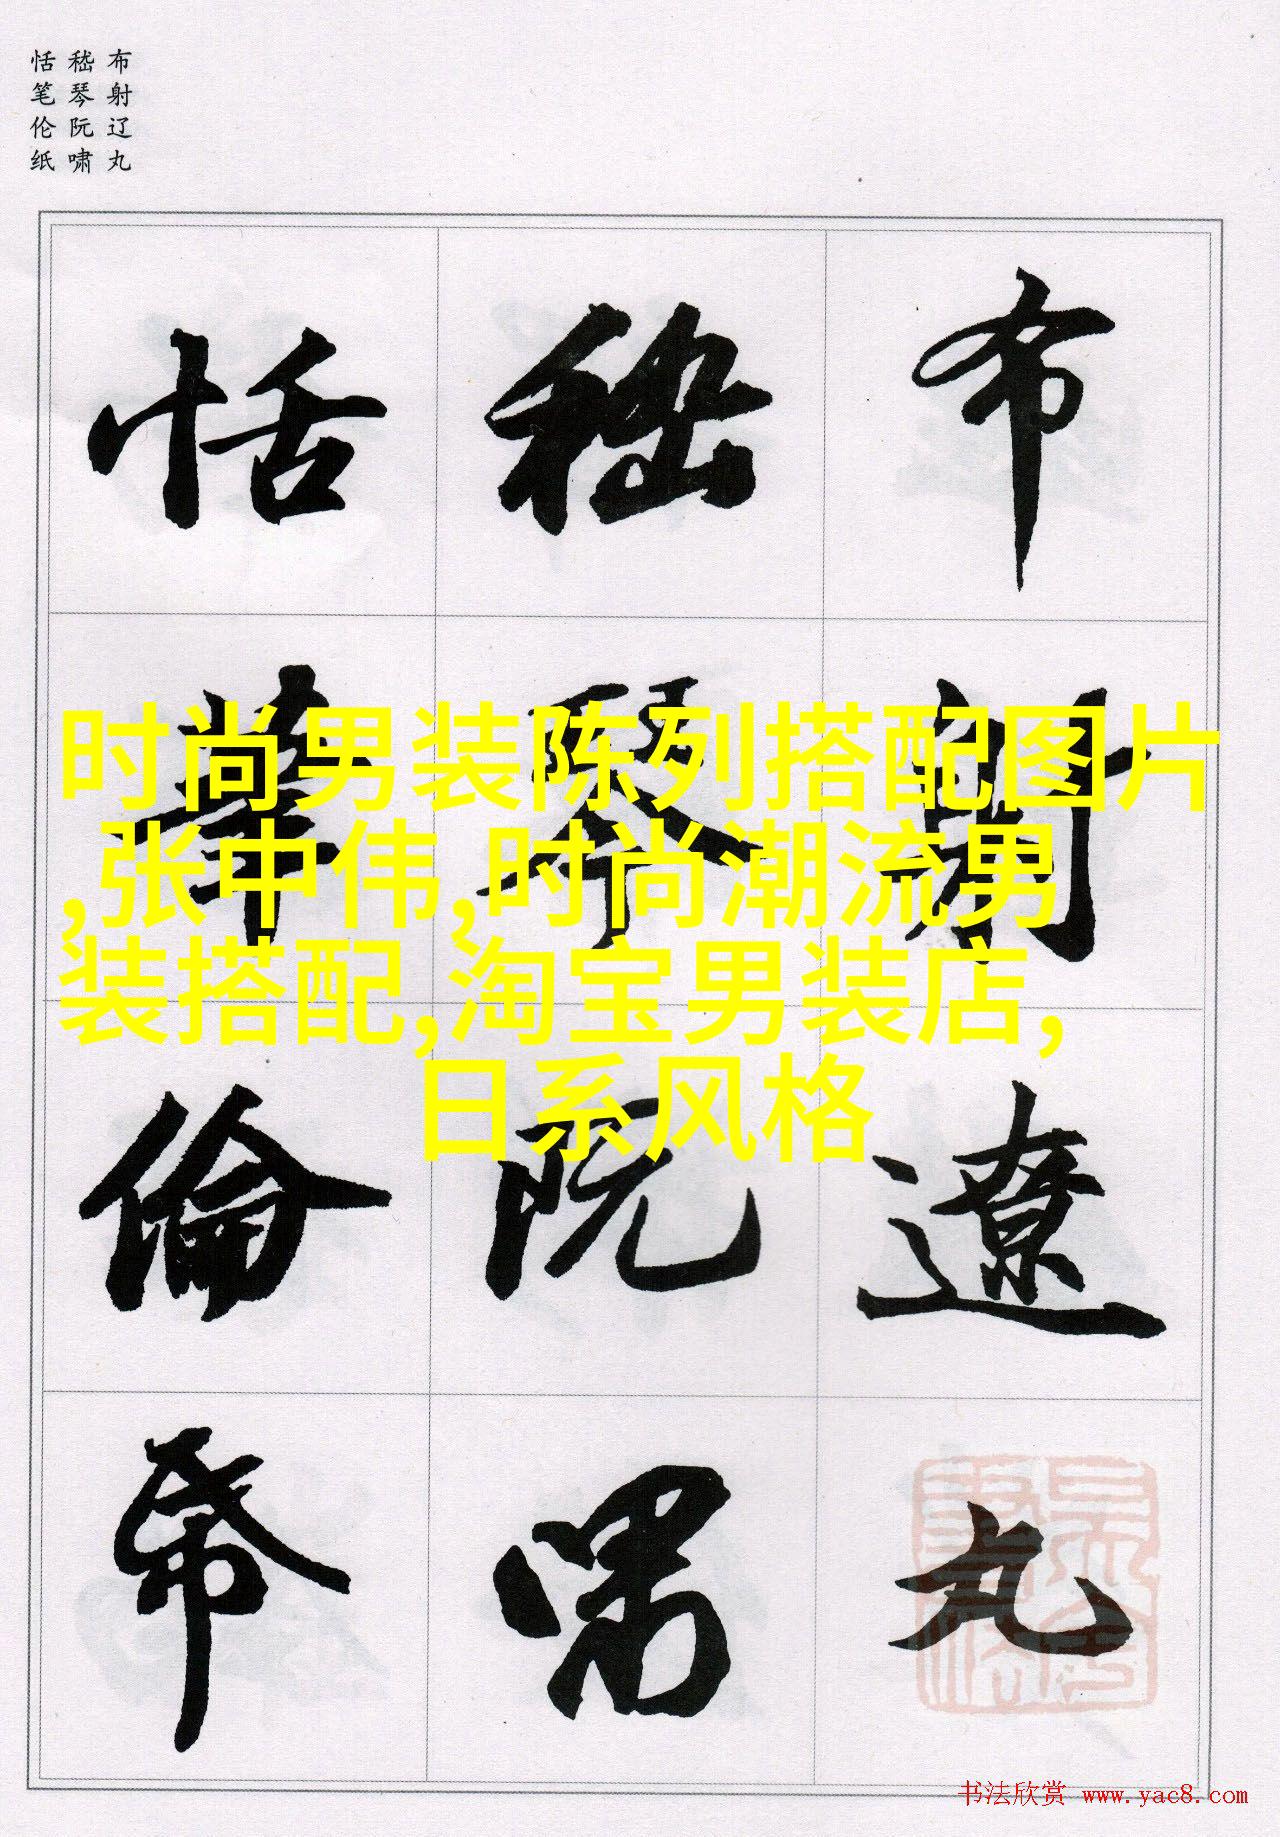 布射辽丸
嵇琴阮啸
恬笔伦纸
布射遼丸
嵇琴阮嘯
恬筆倫紙
时尚男装陈列搭配图片
,张中伟,时尚潮流男
装搭配,淘宝男装店,
日系风格
书法欣赏 www.yac8.com